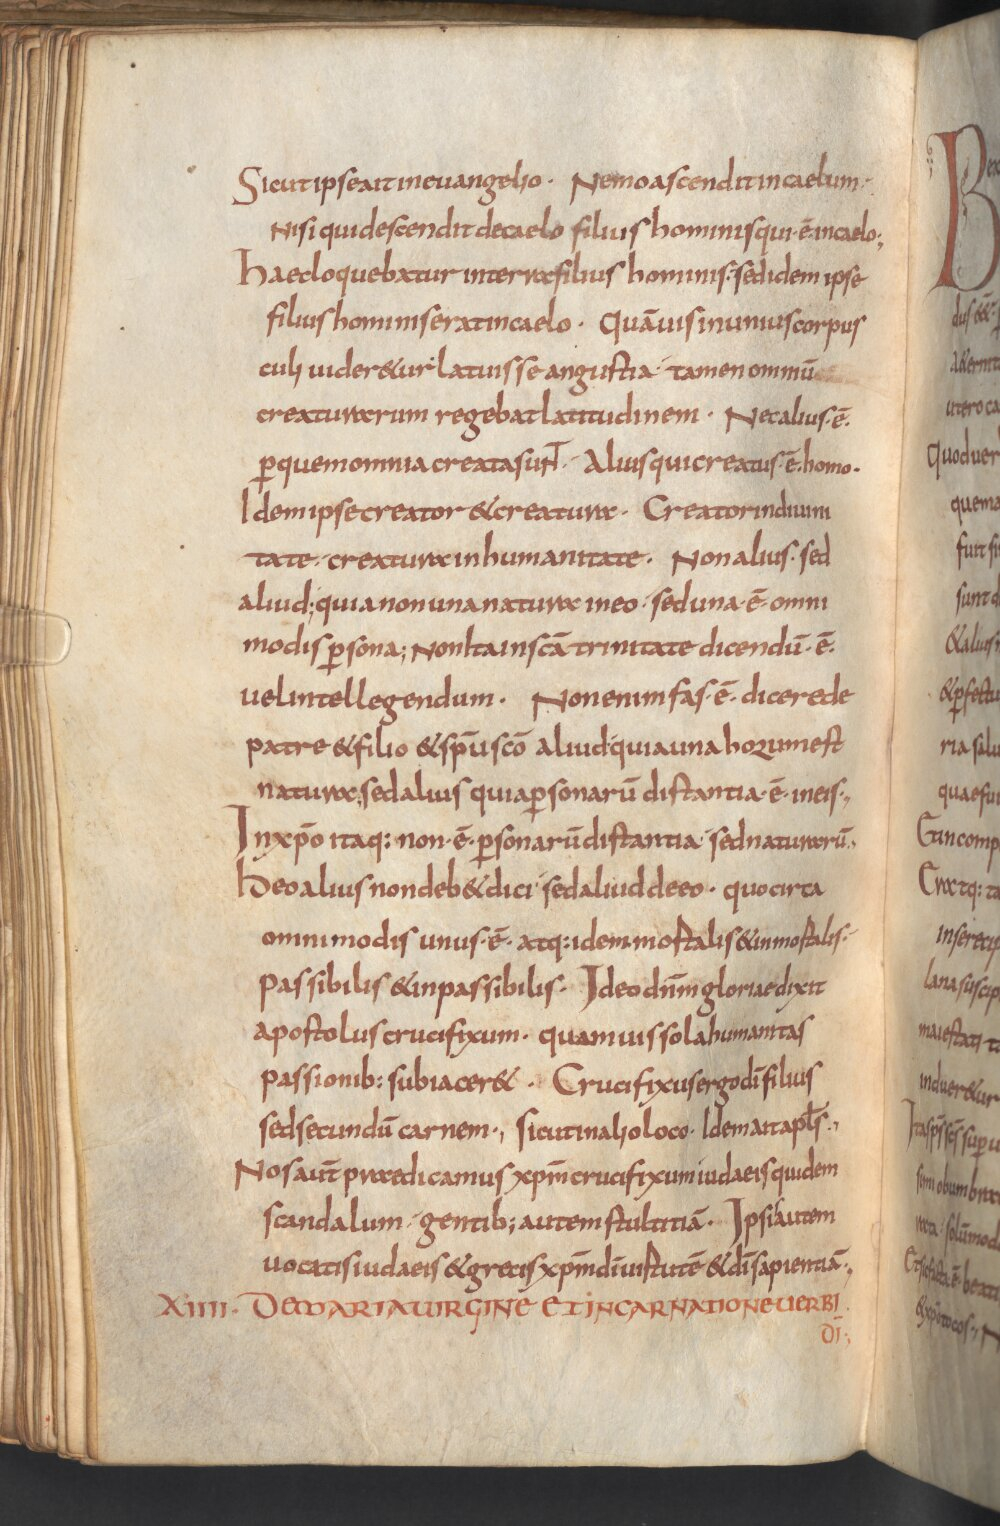 Sicut ipse ait in euangelio · Nemo ascendit in caelum ·
Nisi qui descendit de caelo filius hominis qui · ē · in caelo ·,
Haec loquebatur in terra filius hominis : sed idem ipse
filius hominis erat in caelo · Quāuis in unius corpus
culi uider&ur latuisse angustia · tamen omniū
creaturarum regebat latitudinem · Nec alius · ē ·
ꝑ quem omnia creata sunt · Alius qui creatus · ē · homo ·
Idem ipse creator & creatura · Creator in diuini
tate · creatura in humanitate · Non alius · sed
aliud ; quia non una natura in eo · sed una · ē · omni
modis ꝑsona ; Non ita in scā trinitate dicendū · ē ·
uel intellegendum · Non enim fas · ē · dicere de
patre & filio & spū scō aliud · quia una horum est
natura ; sed alius quia ꝑsonarū distantia · ē · in eis ·,
In xpō itaq: non · ē · ꝑsonarū distantia · sed naturarū ·,
Ideo alius non deb& dici · sed aliud de eo · quocirca
omnimodis unus · ē · atq: idem mortalis & inmortalis ·
passibilis & inpassibilis · Ideo dn̄m gloriae dixit
apostolus crucifixum · quamuis sola humanitas
passionib: subiacer& · Crucifixus ergo dī filius
sed secundū carnem ·, sicut in alio loco · Idem ait apl̄s ·,
Nos aut̄ praedicamus xpm̄ crucifixum iudaeis quidem
scandalum · gentib; autem stultitiā · Ipsis autem
uocatis iudaeis & grecis xpm̄ dī uirtutē & dī sapientiā ·,
XIIII · DE MARIA UIRGINE ET INCARNATIONE UERBI
DĪ ·,